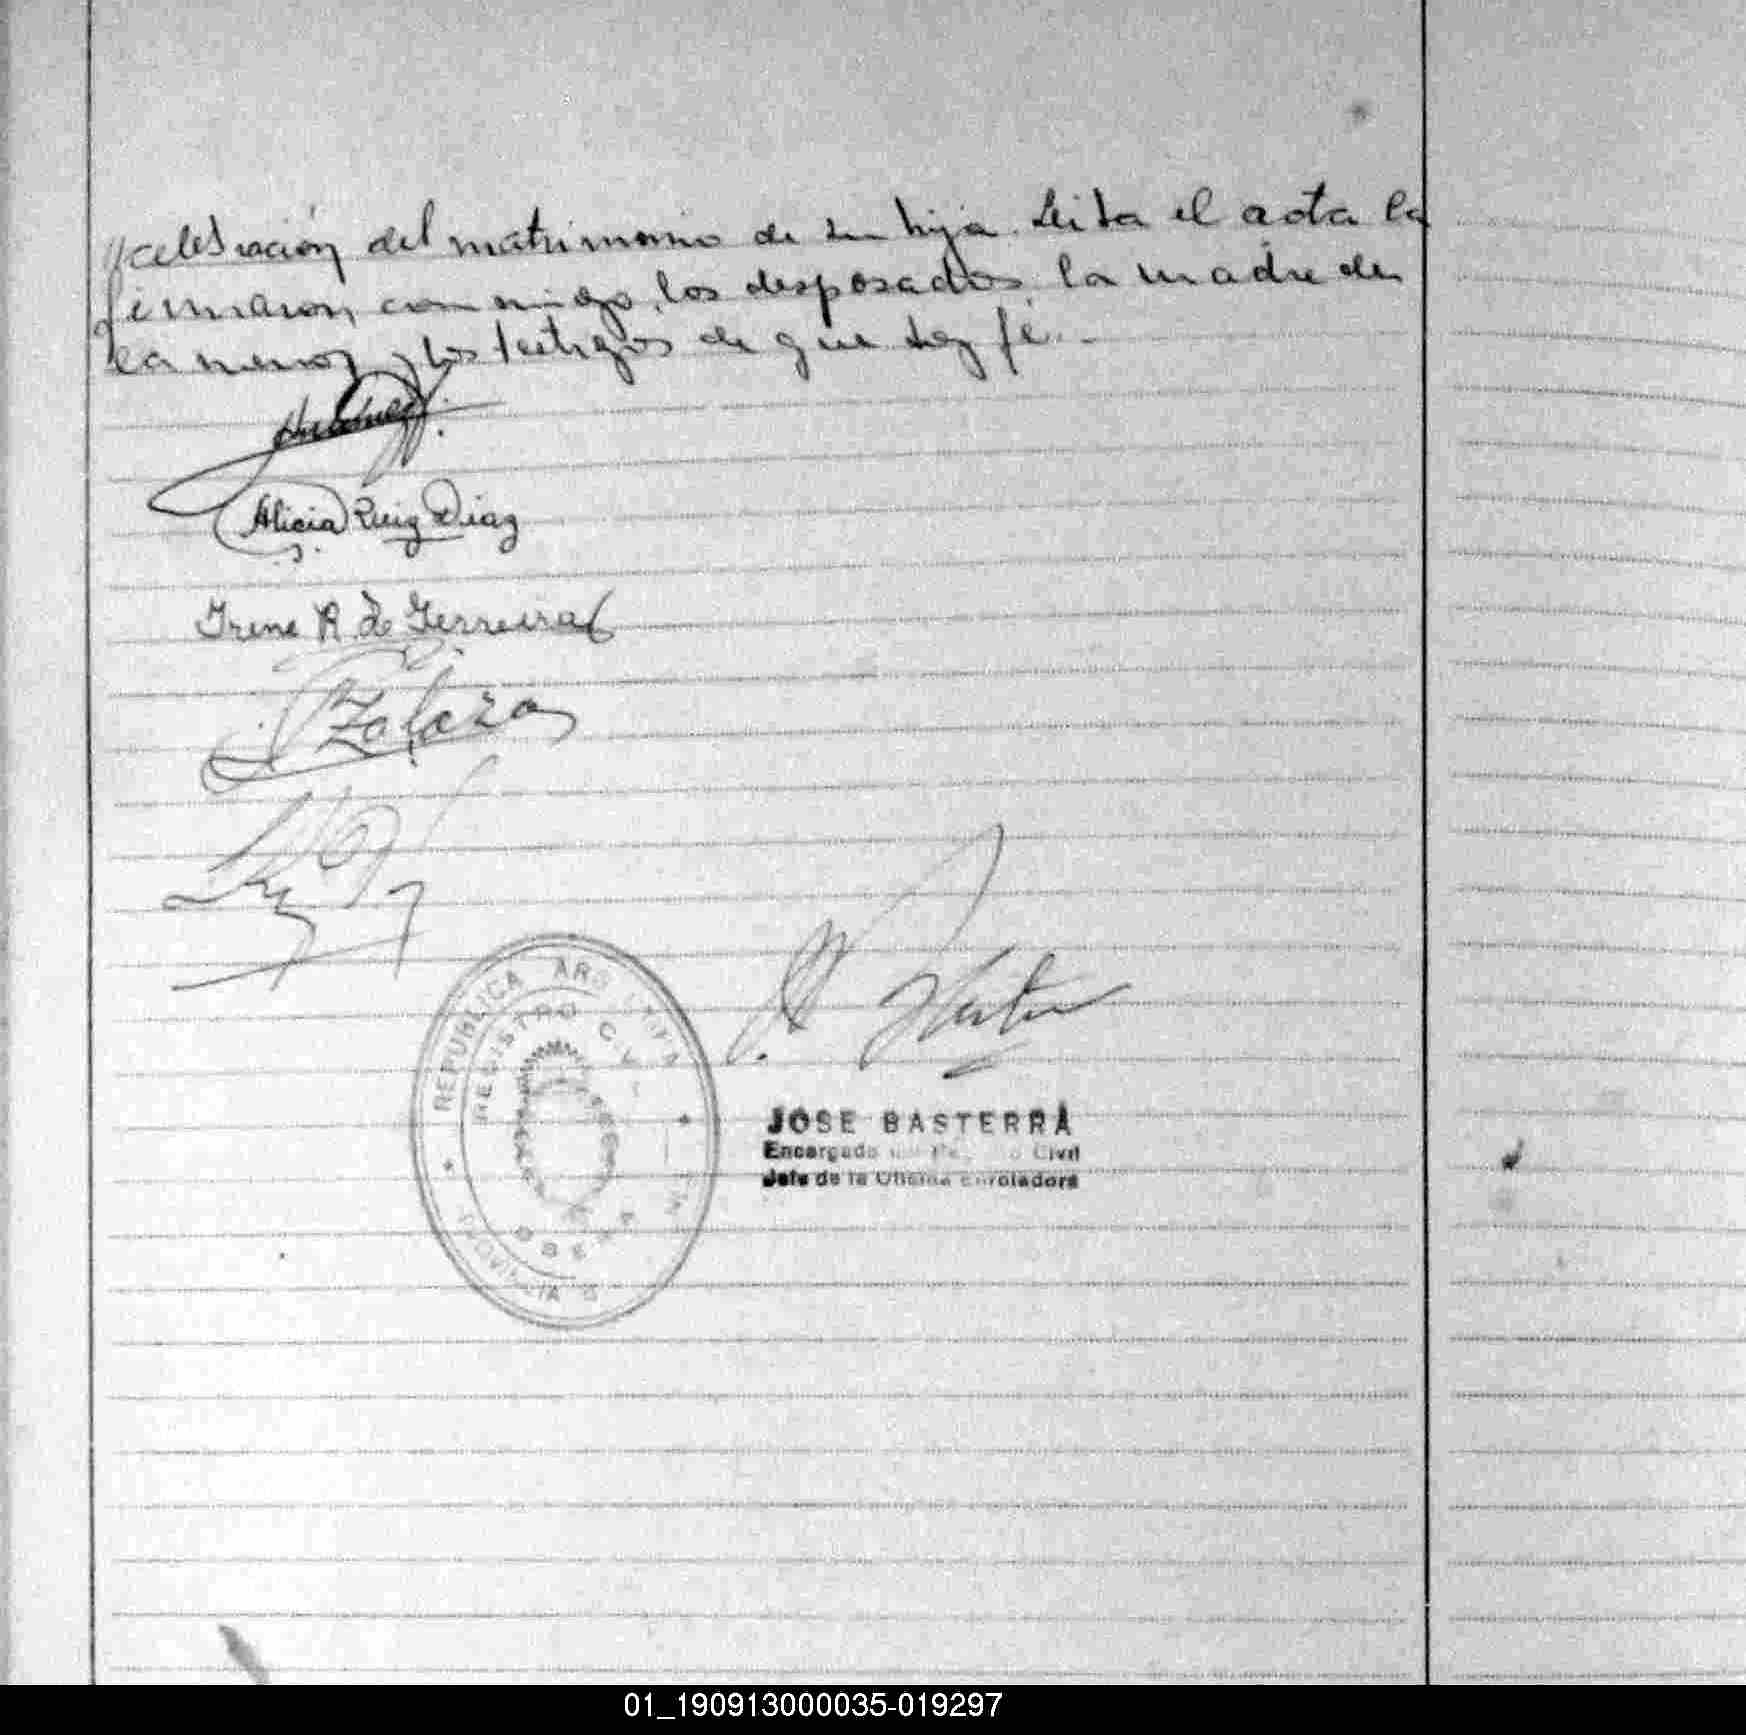 celebración del matrimonio de su hija. Leida el acta la
firmaron conmigo, los desposados, la madre de
la menor y los testigos de que doy fé.-
Alicia Ruiz Diaz
Irene R. de Ferreira
Zalazar
REPUBLICA ARGENTINA
REGISTRO CIVIL
PROVINCIA
JOSE BASTERRA
Encargado del Registro Civil
Jefe de la Oficina Enroladora
01_190913000035-019297